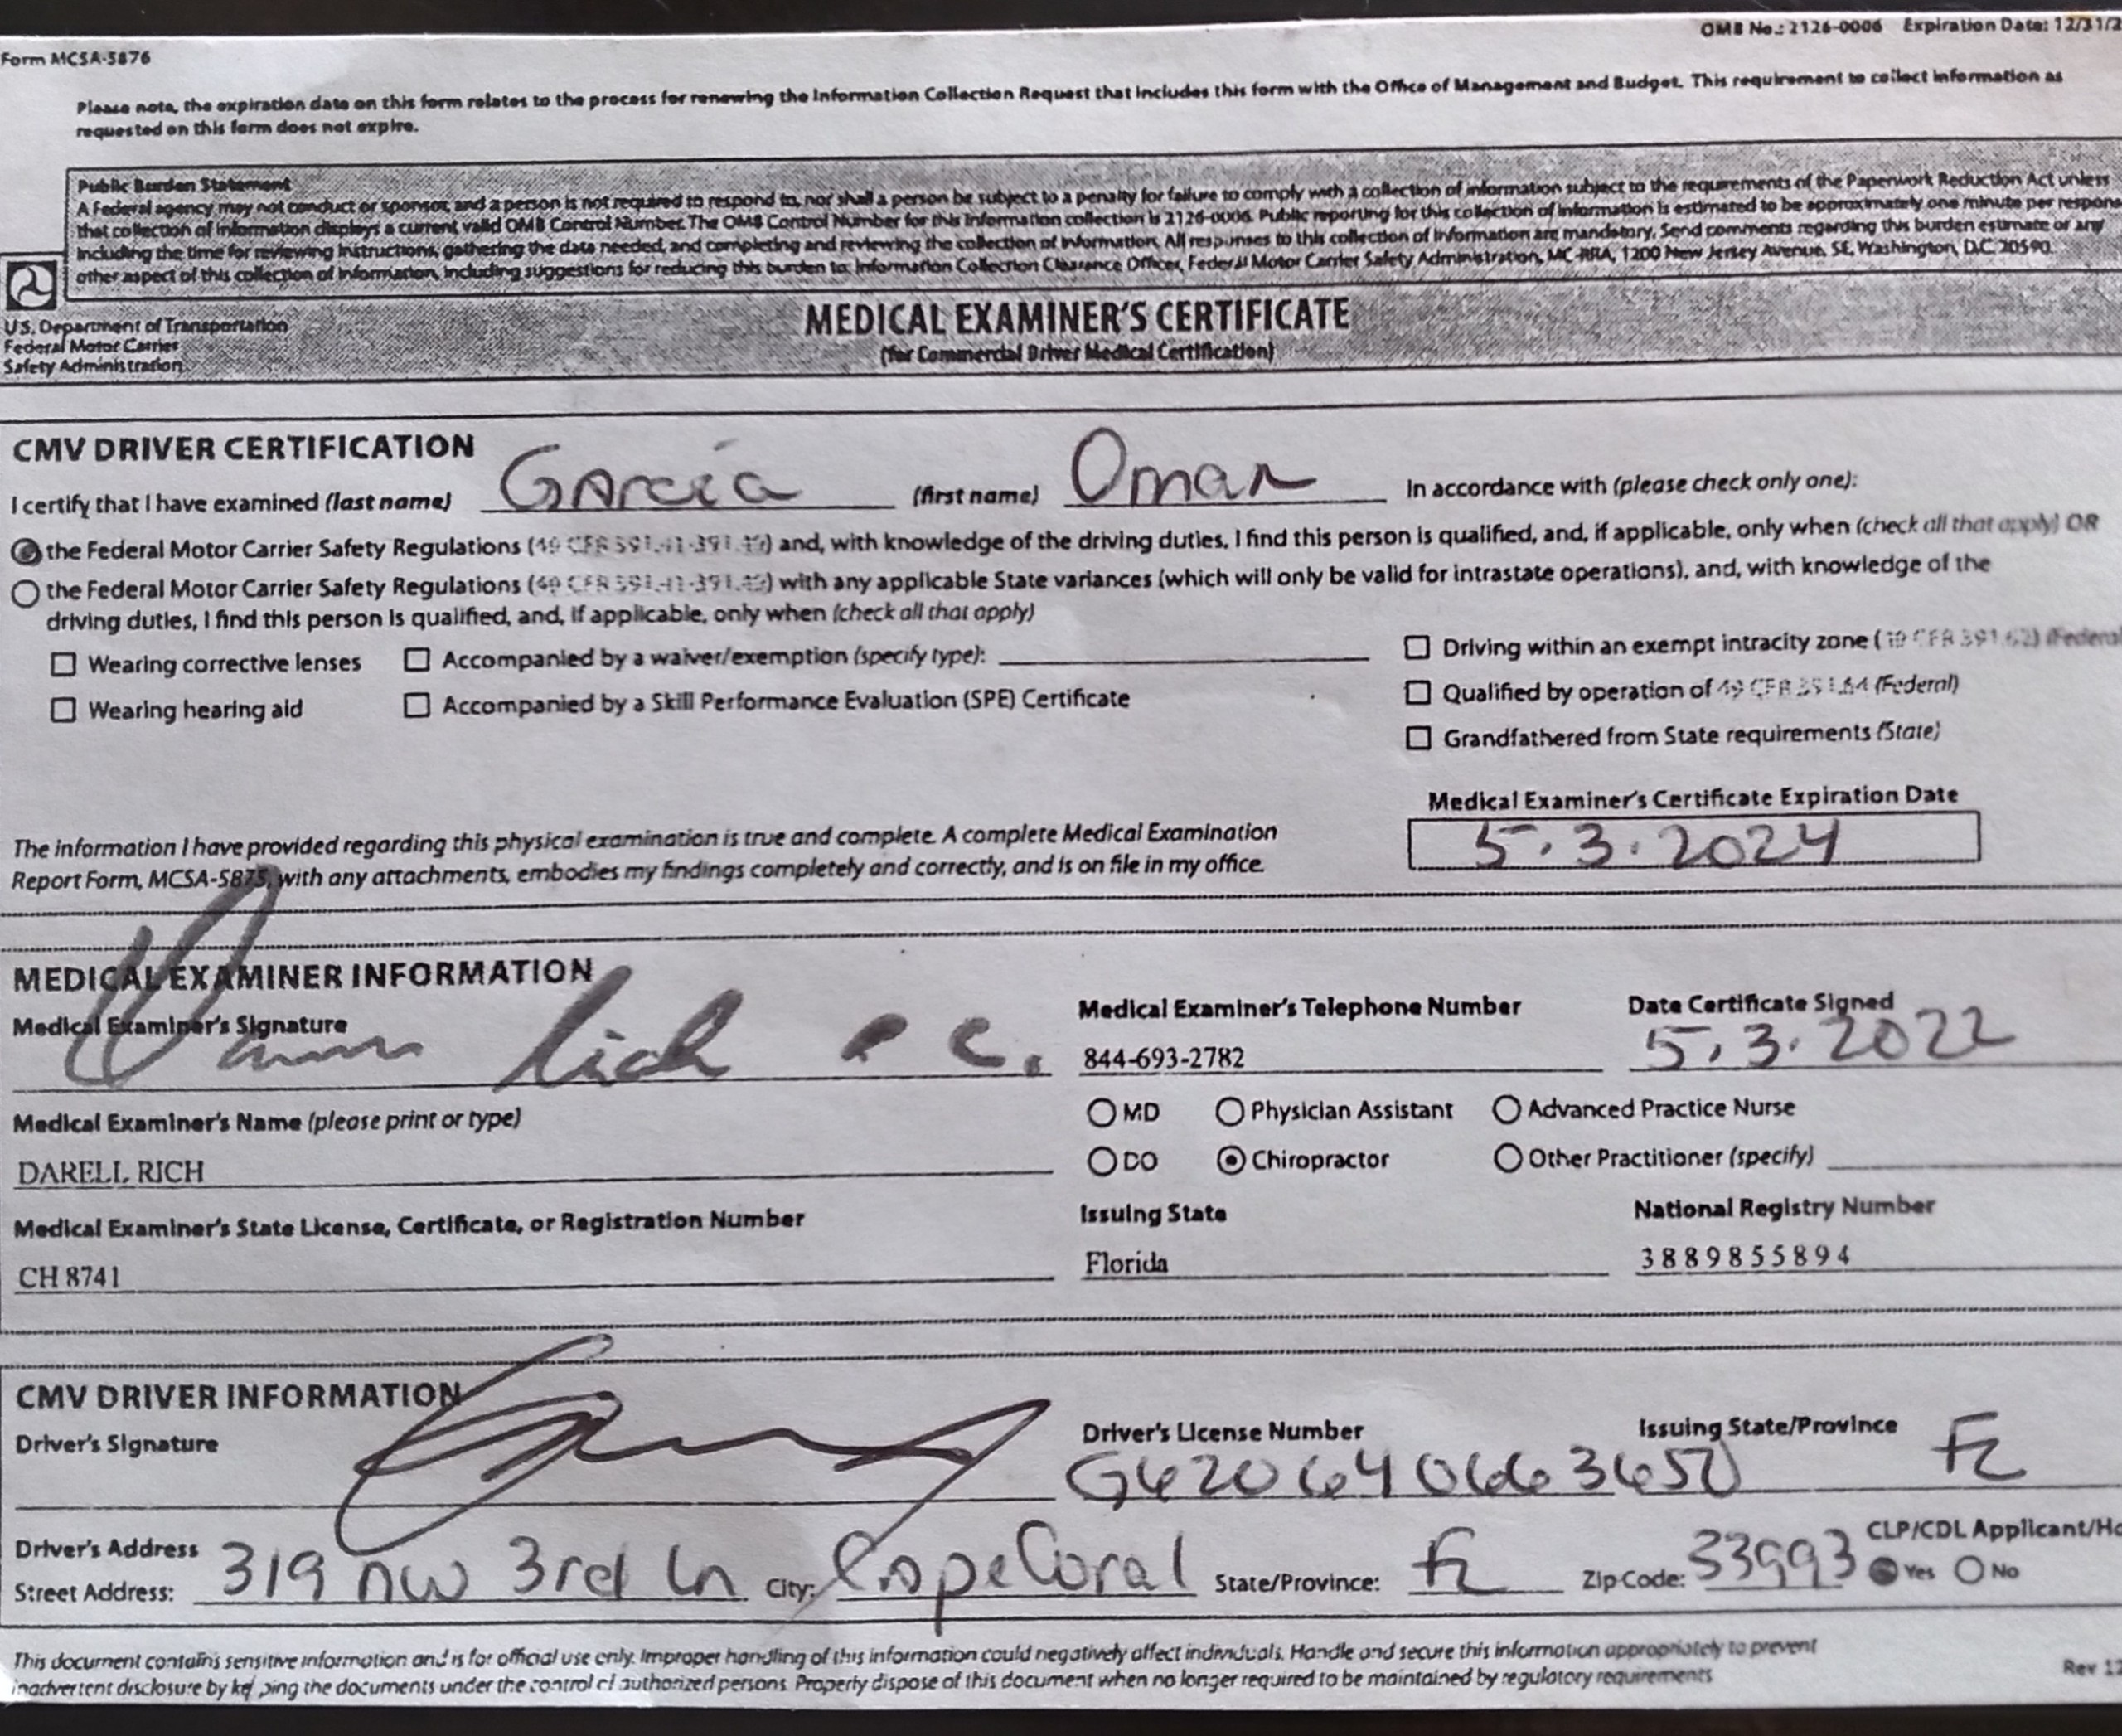 OMB No.: 2126-0006 Expiration Date: 12/31/2
Form MCSA-5876
Please note, the expiration date on this form relates to the process for renewing the Information Collection Request that includes this form with the Office of Management and Budget. This requirement to collect information as
requested on this form does not expire.
Public Burden Statement
A Federal agency may not conduct or sponsor, and a person is not required to respond to, nor shall a person be subject to a penalty for failure to comply with a collection of information subject to the requirements of the Paperwork Reduction Act unless
that collection of information displays a current valid OMB Control Number. The OMB Control Number for this information collection is 2126-0006. Public reporting for this collection of information is estimated to be approximately one minute per respon
including the time for reviewing instructions, gathering the data needed, and completing and reviewing the collection of information. All responses to this collection of information are mandatory. Send comments regarding this burden estimate or any
other aspect of this collection of information, including suggestions for reducing this burden to: Information Collection Clearance Officer, Federal Motor Carrier Safety Administration, MC-RRA, 1200 New Jersey Avenue, SE, Washington, D.C. 20590.
U.S. Department of Transportation
Federal Motor Carrier
Safety Administration
MEDICAL EXAMINER'S CERTIFICATE
(for Commercial Driver Medical Certification)
CMV DRIVER CERTIFICATION
I certify that I have examined (last name) Garcia (first name) Omar In accordance with (please check only one):
the Federal Motor Carrier Safety Regulations (49 CFR 391.41-391.49) and, with knowledge of the driving duties, I find this person is qualified, and, if applicable, only when (check all that apply) OR
the Federal Motor Carrier Safety Regulations (49 CFR 391.41-391.49) with any applicable State variances (which will only be valid for intrastate operations), and, with knowledge of the
driving duties, I find this person is qualified, and, if applicable, only when (check all that apply)
Wearing corrective lenses Accompanied by a waiver/exemption (specify type): Driving within an exempt intracity zone (49 CFR 391.62) (Federal
Wearing hearing aid Accompanied by a Skill Performance Evaluation (SPE) Certificate Qualified by operation of 49 CFR 391.64 (Federal)
Grandfathered from State requirements (State)
Medical Examiner's Certificate Expiration Date
5.3.2024
The information I have provided regarding this physical examination is true and complete. A complete Medical Examination
Report Form, MCSA-5875, with any attachments, embodies my findings completely and correctly, and is on file in my office.
MEDICAL EXAMINER INFORMATION
Medical Examiner's Signature Medical Examiner's Telephone Number Date Certificate Signed
844-693-2782 5.3.2022
Medical Examiner's Name (please print or type) MD Physician Assistant Advanced Practice Nurse
DARELL RICH DO Chiropractor Other Practitioner (specify)
Medical Examiner's State License, Certificate, or Registration Number Issuing State National Registry Number
CH 8741 Florida 3889855894
CMV DRIVER INFORMATION
Driver's Signature Driver's License Number Issuing State/Province FL
G620640663650
Driver's Address CLP/CDL Applicant/Ho
Street Address: 319 nw 3rd Ln City: Cape Coral State/Province: FL Zip Code: 33993 Yes No
This document contains sensitive information and is for official use only. Improper handling of this information could negatively affect individuals. Handle and secure this information appropriately to prevent
inadvertent disclosure by keeping the documents under the control of authorized persons. Properly dispose of this document when no longer required to be maintained by regulatory requirements
Rev 12